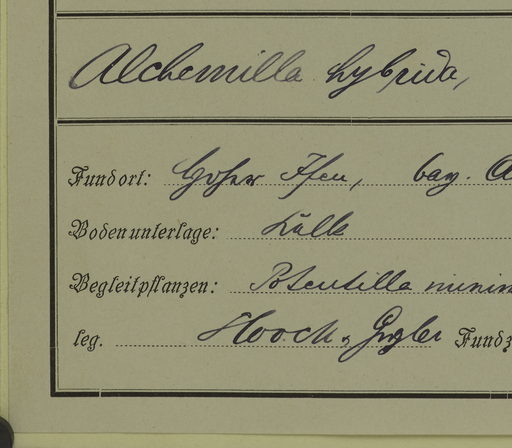 Alchemilla hybrida,
Fundort: Hoher Ifen, bay. A
Bodenunterlage: Kalk
Begleitpflanzen: Potentilla minim
leg. Fundz